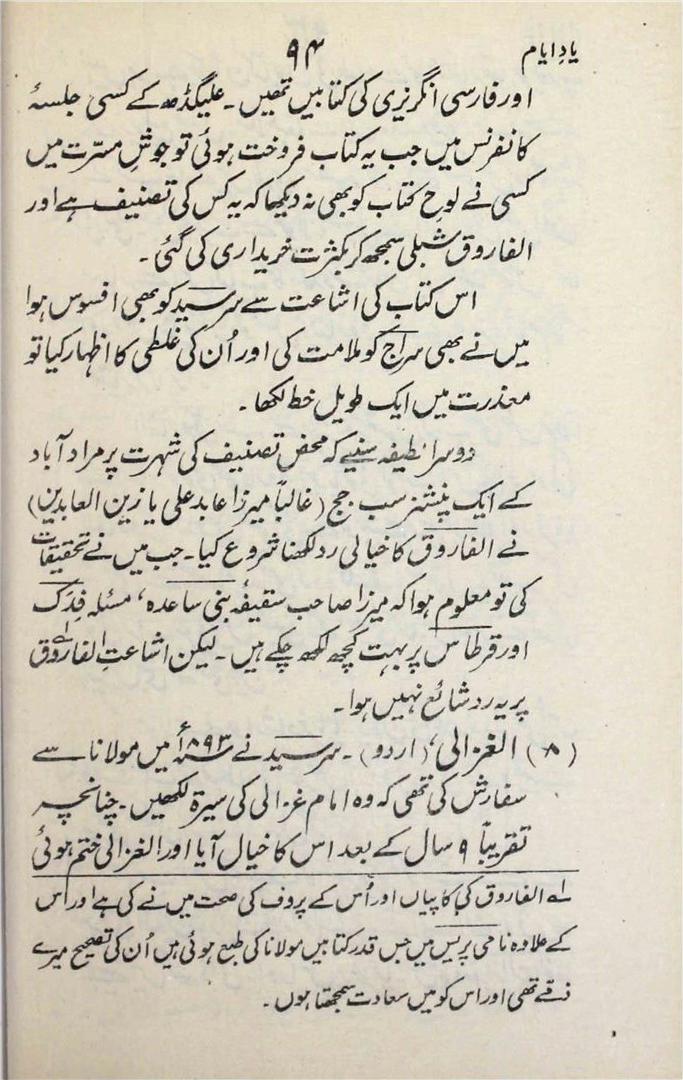 یادِ ایام
۹۴
اور فارسی انگریزی کی کتابیں تھیں۔ علیگڈھ کے کسی جلسۂ
کانفرنس میں جب یہ کتاب فروخت ہوئی تو جوشِ مسرّت میں
کسی نے لوحِ کتاب کو بھی نہ دیکھا کہ یہ کس کی تصنیف ہے اور
الفاروق شبلی سمجھ کر بکثرت خریداری کی گئی۔
اس کتاب کی اشاعت سے سرسید کو بھی افسوس ہوا
میں نے بھی سراج کو ملامت کی اور اُن کی غلطی کا اظہار کیا تو
معذرت میں ایک طویل خط لکھا۔
دوسرا لطیفہ سنیے کہ محض تصنیف کی شہرت پر مراد آباد
کے ایک پنشنر سب جج (غالباً میرزا عابد علی یا زین العابدین)
نے الفاروق کا خیالی رد لکھنا شروع کیا۔ جب میں نے تحقیقات
کی تو معلوم ہوا کہ میرزا صاحب سقیفۂ بنی ساعدہ، مسئلہ فِدَک
اور قرطاس پر بہت کچھ لکھ چکے ہیں۔ لیکن اشاعتِ الفاروق لہ
پر یہ رد شائع نہیں ہوا۔
(۸) الغزالی، (اردو)۔ سرسید نے ۱۸۹۳ء میں مولانا سے
سفارش کی تھی کہ وہ امام غزالی کی سیرۃ لکھیں۔ چنانچہ
تقریباً ۹ سال کے بعد اس کا خیال آیا اور الغزالی ختم ہوئی
لہ الفاروق کی کاپیاں اور اُس کے پروف کی صحت میں نے کی ہے اور اس
کے علاوہ نامی پریس میں جس قدر کتابیں مولانا کی طبع ہوئی ہیں اُن کی تصحیح میرے
ذمّے تھی اور اس کو میں سعادت سمجھتا ہوں۔